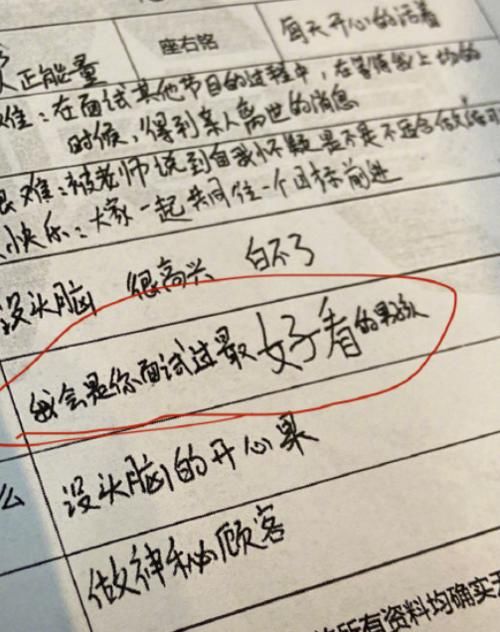 正能量 座右铭 每天开心的活着
难：在面试其他节目的过程中，在等候上场的
时候，得到亲人离世的消息
艰难：被老师说到自我怀疑是不是不适合做
快乐：大家一起共同往一个目标前进
没头脑 很高兴 白不了
我会是你面试过最好看的男孩
么 没头脑的开心果
做神秘顾客
所有资料均确实无